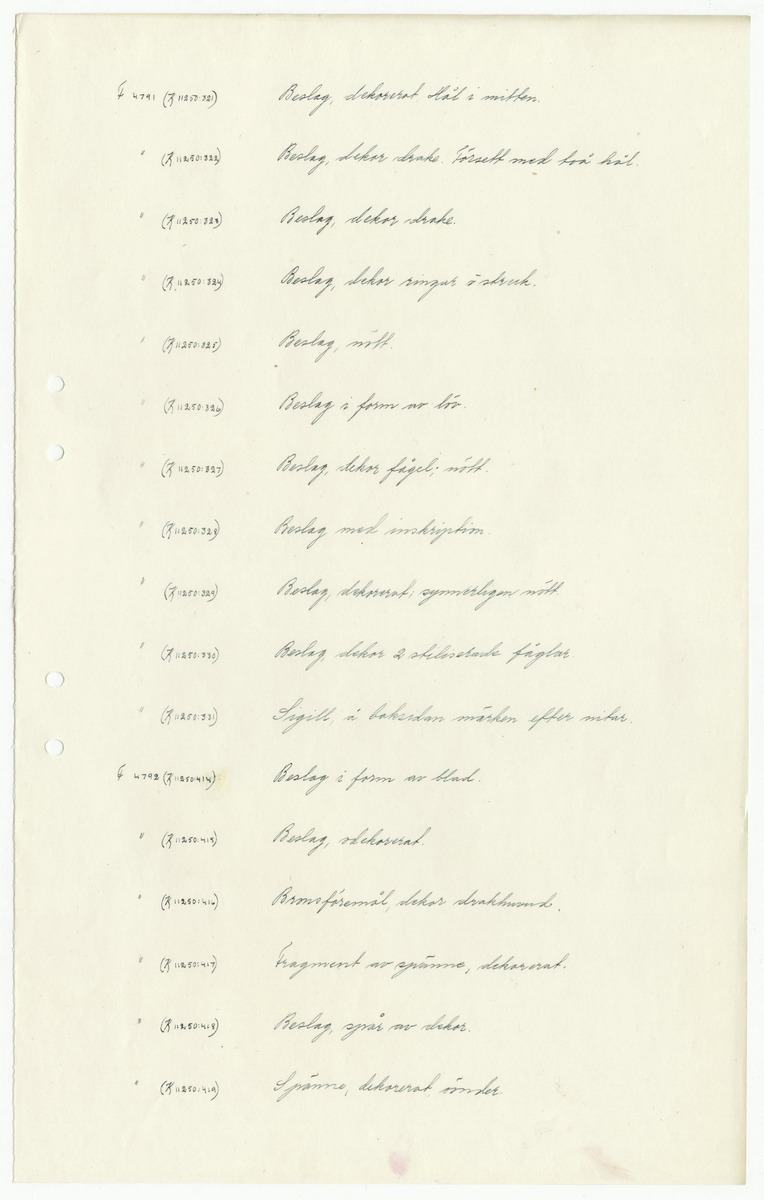 F 4791 (K 11250:321) Beslag, dekorerat. Hål i mitten.
" (K 11250:322) Beslag, dekor drake. Försett med två hål.
" (K 11250:323) Beslag, dekor drake.
" (K 11250:324) Beslag, dekor ringar o streck.
" (K 11250:325) Beslag, nött.
" (K 11250:326) Beslag i form av löv.
" (K 11250:327) Beslag, dekor fågel; nött.
" (K 11250:328) Beslag med inskription.
" (K 11250:329) Beslag, dekorerat; synnerligen nött
" (K 11250:330) Beslag, dekor 2 stiliserade fåglar
" (K 11250:331) Sigill, å baksidan märken efter nitar.
F 4792 (K 11250:414) Beslag i form av blad.
" (K 11250:415) Beslag, odekorerat.
" (K 11250:416) Bronsföremål, dekor drakhuvud.
" (K 11250:417) Fragment av spänne, dekorerat.
" (K 11250:418) Beslag, spår av dekor.
" (K 11250:419) Spänne, dekorerat, sönder.